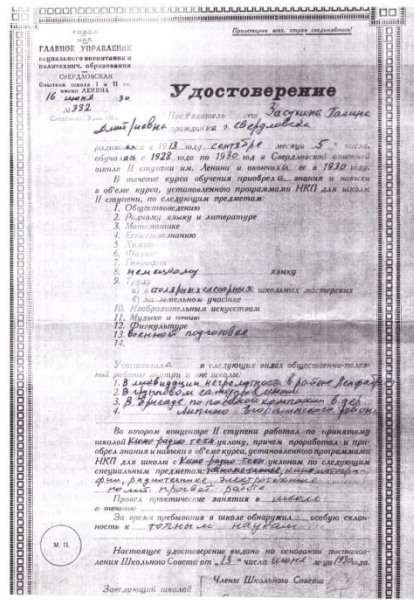 Пролетарии всех стран соединяйтесь!
РСФСР
НКП
ГЛАВНОЕ УПРАВЛЕНИЕ
социального воспитания и
политехнич. образования
СВЕРДЛОВСКАЯ
Опытная школа I и II ст.
имени ЛЕНИНА
16 июня 30
№ 332
Удостоверение
Засухина Галина
Дмитриевна гражданка г. Свердловска
родилась в 1913 году, сентябре месяца 5 числа,
обучалась с 1923 года по 1930 год в Свердловской опытной
школе II ступени им. Ленина и окончила ее в 1930 году.
В течение курса обучения приобрела знания и навыки
в об'еме курса, установленного программами НКП для школы
II ступени, по следующим предметам:
1. Обществоведению
2. Родному языку и литературе
3. Математике
4. Естествознанию
5. Химии
6. Физике
7. Географии
8. немецкому языку
9. Труду
а) в столярных слесарных школьных мастерских
б) на земельном участке
10. Изобразительным искусствам
11. Музыке и пению
12. Физкультуре
13. военной подготовке
14.
Участвовала в следующих видах общественно-полез-
ной работы внутри и вне школы:
1. В ликвидации неграмотности в районе Ленфабрики
2. В групповом самоуправлении
3. В бригаде по посевной кампании в дер.
4. Липино района
Во втором концентре II ступени работал по принятому
школой Кино радио техн уклону, причем проработал и при-
обрел знания и навыки в об'еме курса, установленного программами
НКП для школы с Кино радио техн уклоном по следующим
специальным предметам
фии, радиотехнике электротехнике
полит. просвет. работе
Провел практические занятия в школе
в течение
За время пребывания в школе обнаружил особую склон-
ность к точным наукам
Настоящее удостоверение выдано на основании постанов-
ления Школьного Совета от „13“ числа июня м-ца 1930 года.
М. П.
Члены Школьного Совета
Заведующий школой